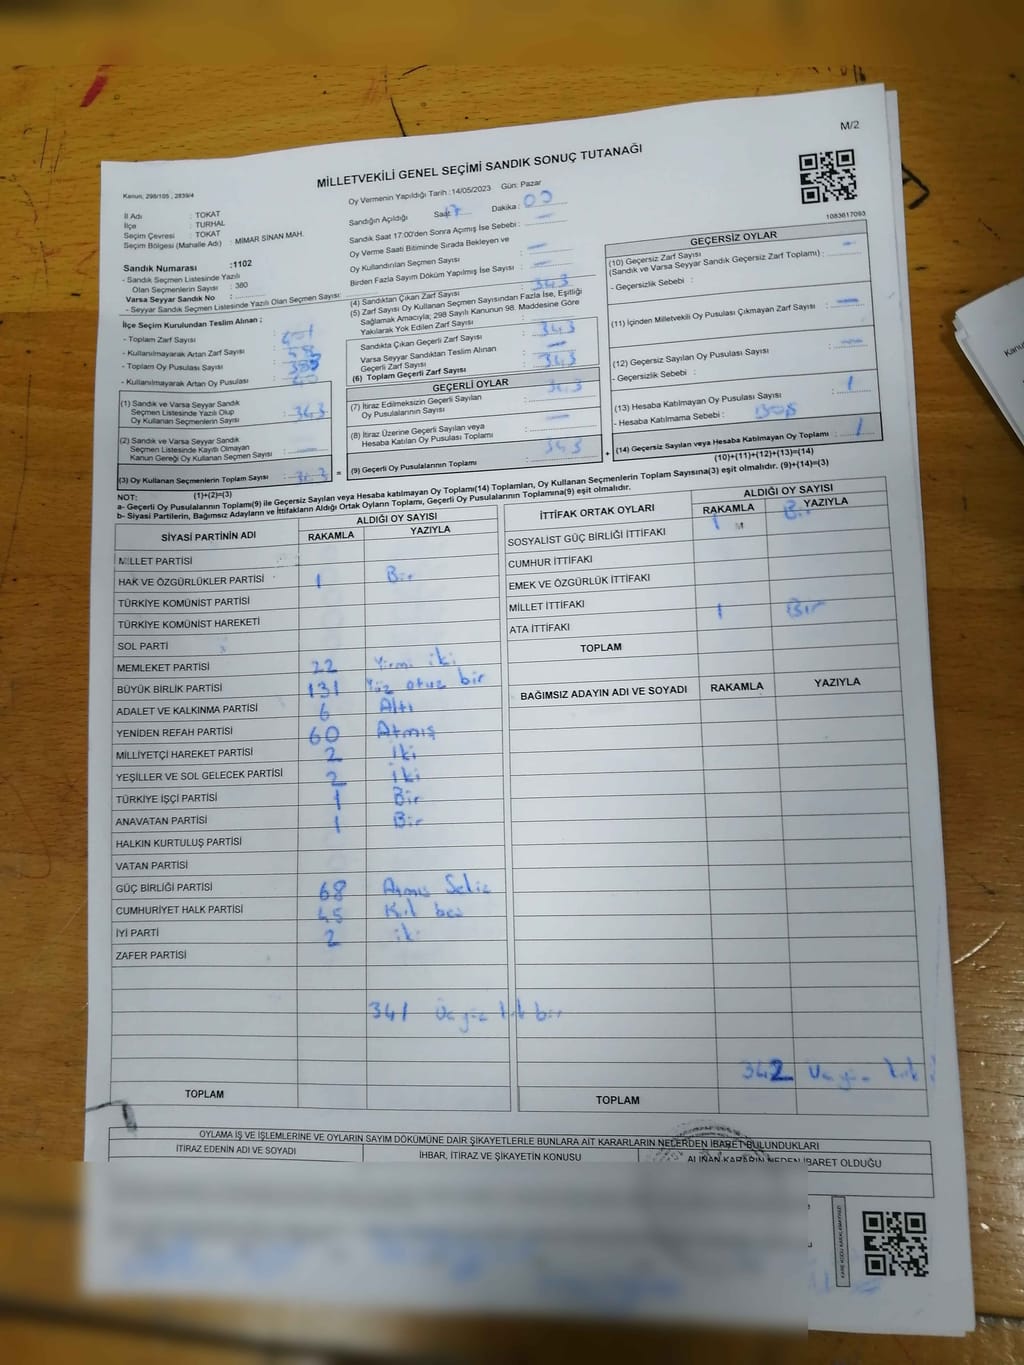 M/2
MİLLETVEKİLİ GENEL SEÇİMİ SANDIK SONUÇ TUTANAĞI
Kanun, 298/105 , 2839/4
Oy Vermenin Yapıldığı Tarih : 14/05/2023 Gün: Pazar
1083617093
İl Adı : TOKAT
İlçe : TURHAL
Seçim Çevresi : TOKAT
Seçim Bölgesi (Mahalle Adı) : MİMAR SİNAN MAH.
Sandık Numarası :1102
- Sandık Seçmen Listesinde Yazılı
Olan Seçmenlerin Sayısı : 380
Varsa Seyyar Sandık No :
- Seyyar Sandık Seçmen Listesinde Yazılı Olan Seçmen Sayısı:
Sandığın Açıldığı Saat: 17 Dakika : 00
Sandık Saat 17:00'den Sonra Açımış İse Sebebi : —
Oy Verme Saati Bitiminde Sırada Bekleyen ve
Oy Kullandırılan Seçmen Sayısı : —
Birden Fazla Sayım Döküm Yapılmış İse Sayısı : —
İlçe Seçim Kurulundan Teslim Alınan ;
- Toplam Zarf Sayısı :
- Kullanılmayarak Artan Zarf Sayısı :
- Toplam Oy Pusulası Sayısı :
- Kullanılmayarak Artan Oy Pusulası :
(1) Sandık ve Varsa Seyyar Sandık
Seçmen Listesinde Yazılı Olup
Oy Kullanan Seçmenlerin Sayısı : 343
(2) Sandık ve Varsa Seyyar Sandık
Seçmen Listesinde Kayıtlı Olmayan
Kanun Gereği Oy Kullanan Seçmen Sayısı : —
(3) Oy Kullanan Seçmenlerin Toplam Sayısı : 343
(1)+(2)=(3)
(4) Sandıktan Çıkan Zarf Sayısı : 343
(5) Zarf Sayısı Oy Kullanan Seçmen Sayısından Fazla İse, Eşitliği
Sağlamak Amacıyla; 298 Sayılı Kanunun 98. Maddesine Göre
Yakılarak Yok Edilen Zarf Sayısı :
Sandıkta Çıkan Geçerli Zarf Sayısı : 343
Varsa Seyyar Sandıktan Teslim Alınan
Geçerli Zarf Sayısı : —
(6) Toplam Geçerli Zarf Sayısı : 343
GEÇERLİ OYLAR
(7) İtiraz Edilmeksizin Geçerli Sayılan
Oy Pusulalarının Sayısı : 343
(8) İtiraz Üzerine Geçerli Sayılan veya
Hesaba Katılan Oy Pusulası Toplamı : —
= (9) Geçerli Oy Pusulalarının Toplamı : 343
GEÇERSİZ OYLAR
(10) Geçersiz Zarf Sayısı
(Sandık ve Varsa Seyyar Sandık Geçersiz Zarf Toplamı) : —
- Geçersizlik Sebebi :
(11) İçinden Milletvekili Oy Pusulası Çıkmayan Zarf Sayısı : —
(12) Geçersiz Sayılan Oy Pusulası Sayısı : —
- Geçersizlik Sebebi :
(13) Hesaba Katılmayan Oy Pusulası Sayısı : 1
- Hesaba Katılmama Sebebi : Boş
+ (14) Geçersiz Sayılan veya Hesaba Katılmayan Oy Toplamı : 1
(10)+(11)+(12)+(13)=(14)
NOT:
a- Geçerli Oy Pusulalarının Toplamı(9) ile Geçersiz Sayılan veya Hesaba katılmayan Oy Toplamı(14) Toplamları, Oy Kullanan Seçmenlerin Toplam Sayısına(3) eşit olmalıdır. (9)+(14)=(3)
b- Siyasi Partilerin, Bağımsız Adayların ve İttifakların Aldığı Ortak Oyların Toplamı, Geçerli Oy Pusulalarının Toplamına(9) eşit olmalıdır.
SİYASİ PARTİNİN ADI ALDIĞI OY SAYISI
RAKAMLA YAZIYLA
MİLLET PARTİSİ
HAK VE ÖZGÜRLÜKLER PARTİSİ 1 Bir
TÜRKİYE KOMÜNİST PARTİSİ
TÜRKİYE KOMÜNİST HAREKETİ
SOL PARTİ
MEMLEKET PARTİSİ 22 Yirmi iki
BÜYÜK BİRLİK PARTİSİ 131 Yüz otuz bir
ADALET VE KALKINMA PARTİSİ 6 Altı
YENİDEN REFAH PARTİSİ 60 Atmış
MİLLİYETÇİ HAREKET PARTİSİ 2 iki
YEŞİLLER VE SOL GELECEK PARTİSİ 2 iki
TÜRKİYE İŞÇİ PARTİSİ 1 Bir
ANAVATAN PARTİSİ 1 Bir
HALKIN KURTULUŞ PARTİSİ
VATAN PARTİSİ
GÜÇ BİRLİĞİ PARTİSİ 68 Atmış Sekiz
CUMHURİYET HALK PARTİSİ 45 Kırk beş
İYİ PARTİ 2 iki
ZAFER PARTİSİ
341 Üç yüz kırk bir
TOPLAM
İTTİFAK ORTAK OYLARI ALDIĞI OY SAYISI
RAKAMLA YAZIYLA
SOSYALİST GÜÇ BİRLİĞİ İTTİFAKI 1 Bir
CUMHUR İTTİFAKI
EMEK VE ÖZGÜRLÜK İTTİFAKI
MİLLET İTTİFAKI 1 Bir
ATA İTTİFAKI
TOPLAM
BAĞIMSIZ ADAYIN ADI VE SOYADI RAKAMLA YAZIYLA
342 Üç yüz kırk
TOPLAM
OYLAMA İŞ VE İŞLEMLERİNE VE OYLARIN SAYIM DÖKÜMÜNE DAİR ŞİKAYETLERLE BUNLARA AİT KARARLARIN NELERDEN İBARET BULUNDUKLARI
İTİRAZ EDENİN ADI VE SOYADI İHBAR, İTİRAZ VE ŞİKAYETİN KONUSU ALINAN KARARIN NEDEN İBARET OLDUĞU
Kanun